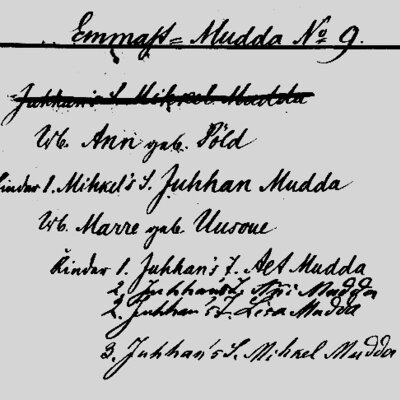 Emmast = Mudda No 9.
Juhhan's S. Mihkel Mudda
Wb. Ann geb. Põld
Kinder 1. Mihkel's S. Juhhan Mudda
Wb. Marre geb. Uusoue
Kinder 1. Juhkan's T. Aet Mudda
2. Juhhan's T. Mudda
2. Juhhan's T. Lisa Mudda
3. Juhhan's S. Mihkel Mudda